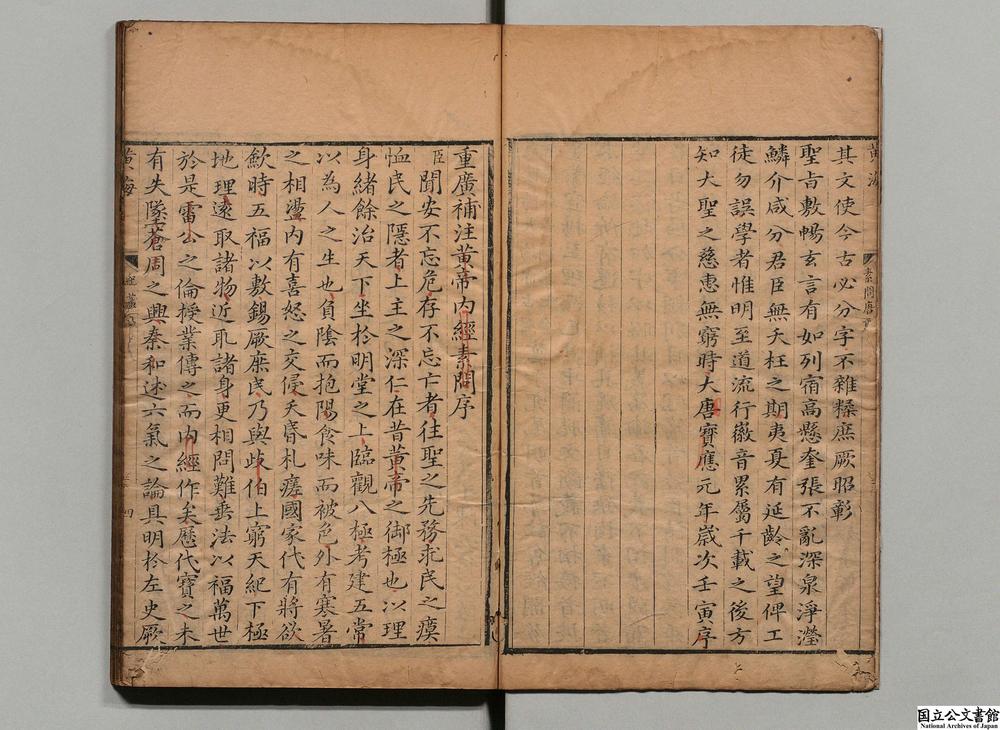 其文使今古必分字不雜糅庶厥昭彰
聖旨敷暢玄言有如列宿高懸奎張不亂深泉淨瀅
鱗介咸分君臣無夭枉之期夷夏有延齡之望俾工
徒勿誤學者惟明至道流行徽音累屬千載之後方
知大聖之慈惠無窮時大唐寶應元年歲次壬寅序
重廣補注黃帝內經素問序
臣聞安不忘危存不忘亡者往聖之先務求民之瘼
恤民之隱者上主之深仁在昔黃帝之御極也以理
身緒餘治天下坐於明堂之上臨觀八極考建五常
以為人之生也負陰而抱陽食味而被色外有寒暑
之相盪內有喜怒之交侵夭昏札瘥國家代有將欲
歛時五福以敷錫厥庶民乃與歧伯上窮天紀下極
地理遠取諸物近取諸身更相問難垂法以福萬世
於是雷公之倫授業傳之而內經作矣歷代寶之未
有失墜蒼周之興秦和述六氣之論具明於左史厥
黃海
素問唐序
黃海
国立公文書館
National Archives of Japan